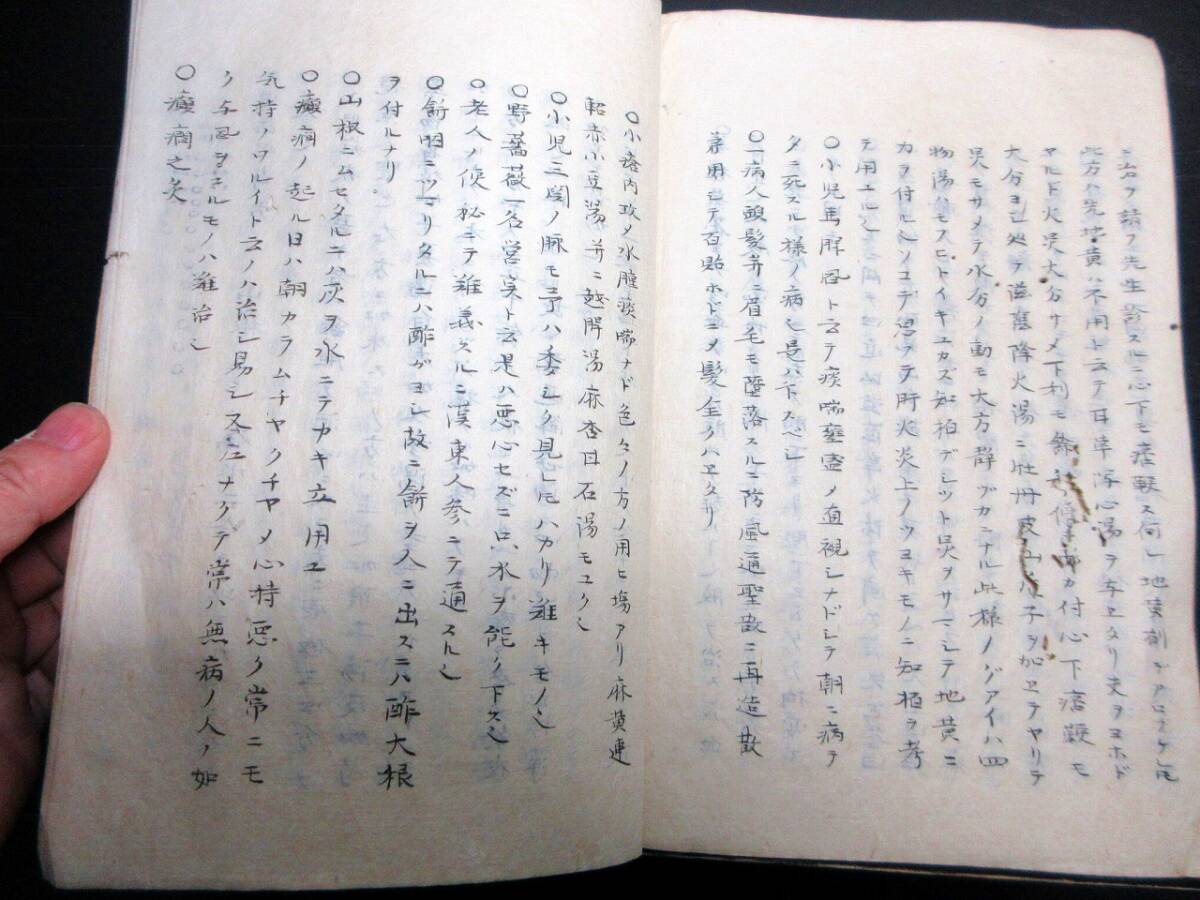 ニ治ヲ請フ先生診スルニ心下モ痞鞕ス何レ地黄剤デアロフケレ𪜈
此方ハ先地黄ハ不用ト云テ甘草瀉心湯ヲ与エタリ夫ヲヨホド
ヤルト火炎大分サメ下利モ 付心下痞鞕モ
大分ヨシ処デ滋陰降火湯ニ牡丹皮山 子ヲ加エテヤリテ
炎モサメテ水分ノ動モ大方静ブカニナル此様ノグアイハ四
物湯ハモスヒトイキユカズ知柏デシツト炎ヲサマシテ地黄ニ
カヲ付ルソコデ思ヲテ肝火炎上ノツヨキモノニ知柏ヲ考
テ用エル也
〇小児馬脾風ト云テ痰喘壅盛メ直視シナドシテ朝ニ病テ
タニ死スル様ノ病也是ハ下スベシ
〇一病人頭髪并ニ眉毛モ墮落スルニ防風通聖散ニ再造散
兼用シテ百貼ホドニメ髪全クハエタリ
〇小瘡内攻メ水腫痰喘ナド色々ノ方ノ用ヒ場アリ麻黄連
軺赤小豆湯并ニ越脾湯麻杏甘石湯モユク也
〇小児三関ノ脈モ予ハ委シク見レ𪜈ハカリ難キモノ也
〇野薔薇一名営実ト云是ハ悪心セズニ只水ヲ能ク下ス也
〇老人ノ便秘シテ難義スルニ漢東人参ニテ通スル也
〇餅咽ニツマリタルニハ酢ガヨシ故ニ餅ヲ人ニ出スニハ酢大根
ヲ付ルナリ
〇山椒ニムセタルニハ灰ヲ水ニテカキ立用ユ
〇癲癇ノ起ル日ハ朝カラムチヤクチヤメ心持悪ク常ニモ
気持ノワルイト云ノハ治シ易シ又 ナクテ常ハ無病ノ人ノ如
ク与風ヲコルモノハ難治也
〇癲癇之灸